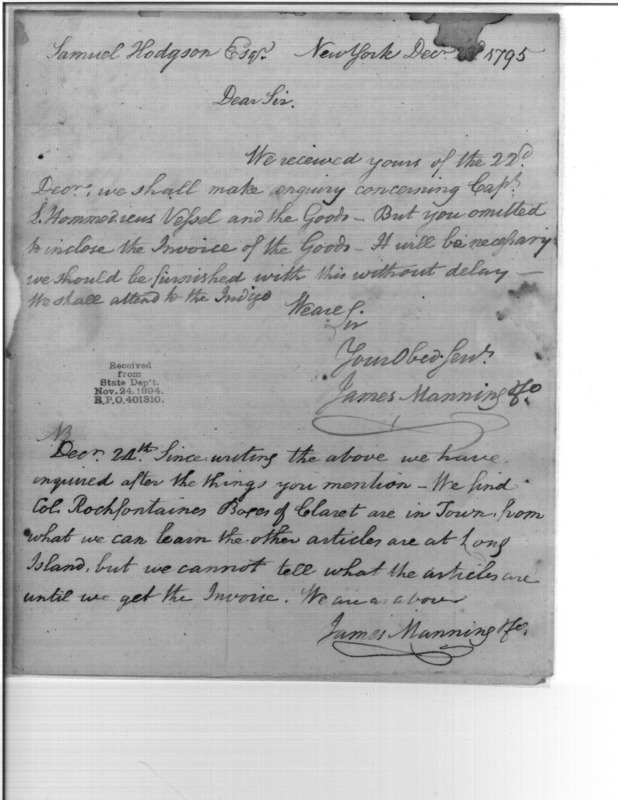 Samuel Hodgson Esqr. New York Decr. 1795
Dear Sir.
We received yours of the 22d.
Decr., we shall make enquiry concerning Capt.
L'Hommedieus Vessel and the Goods – But you omitted
to inclose the Invoice of the Goods – It will be necessary
we should be furnished with this without delay –
We shall attend to the Indigo
We are S.
Sir
Your Obed. Servts.
James Manning & Co
Received
from
State Dep't.
Nov. 24. 1894.
R.P.O. 401310.
NB
Decr. 24th. Since writing the above we have
enquired after the things you mention – We find
Col. Rochfontaines Boxes of Claret are in Town, from
what we can learn the other articles are at Long
Island, but we cannot tell what the articles are
until we get the Invoice. We are as above
James Manning & Co.